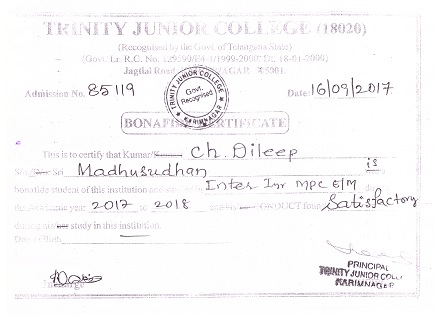 TRINITY JUNIOR COLLEGE (18020)
(Recognised by the Govt. of Telangana State)
(Govt. Lr. R.C. No. /E4-1/1999-2000, Dt. 18-01-2000)
Jagtial Road, KARIMNAGAR
TRINITY JUNIOR COLLEGE
Govt. Recognised
KARIMNAGAR
Admission No. 85119 Date: 16/09/2017
BONAFIDE CERTIFICATE
This is to certify that Kumar/ Ch. Dileep
S/o. Sri Madhusudhan is
bonafide student of this institution and Inter Inr MPC E/M
the Academic year 2017 to 2018 CONDUCT found Satisfactory
during study in this institution.
Date of Birth
PRINCIPAL
TRINITY JUNIOR COLL
KARIMNAGAR